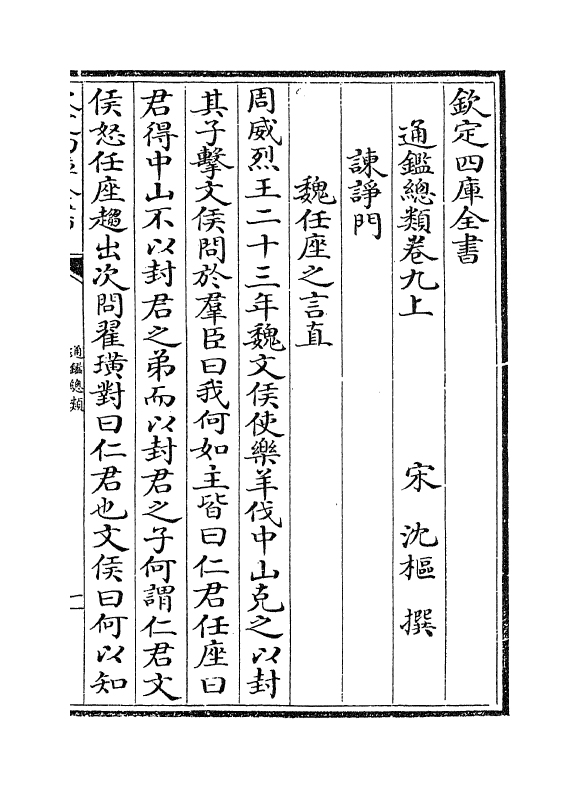 欽定四庫全書
通鑑總類卷九上　宋　沈樞　撰
諫諍門
魏任座之言直
周威烈王二十三年魏文侯使樂羊伐中山克之以封
其子擊文侯問於羣臣曰我何如主皆曰仁君任座曰
君得中山不以封君之弟而以封君之子何謂仁君文
侯怒任座趨出次問翟璜對曰仁君也文侯曰何以知
通鑑總類